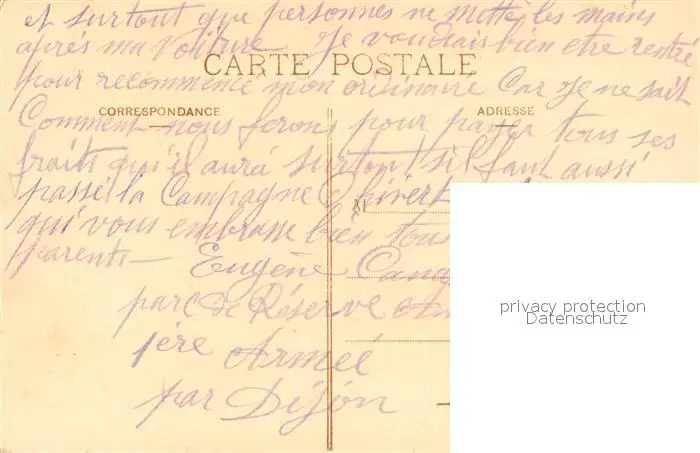 et surtout que personnes ne mette les mains
après ma Voiture Je voudrais bien etre rentré
CARTE POSTALE
pour recommence mon ordinaire Car Je ne sait
CORRESPONDANCE
ADRESSE
Comment nous ferons pour payer tous ses
fraits qu'il aura surtout s'il faut aussi
passé la Campagne hivert
M
qui vous embrasse bien tous
parents
Eugène
parc De Réserve
1ère Armée
par Dijon
privacy protection
Datenschutz